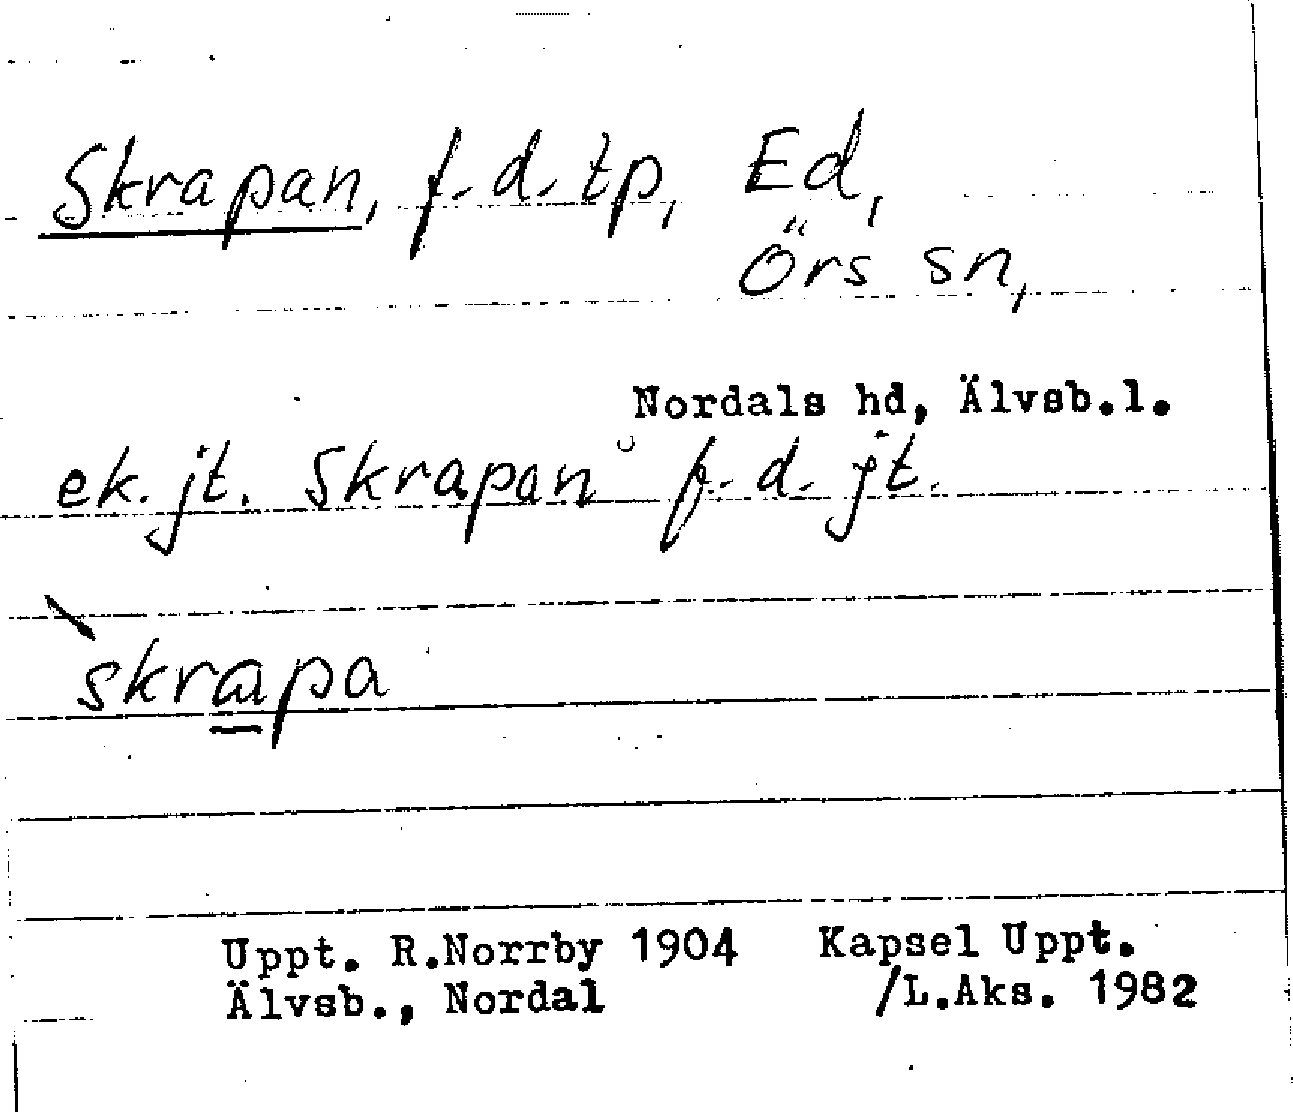 Skrapan, f.d. tp, Ed,
Örs sn,
Nordals hd, Älvsb.l.
ek. jt. Skrapan f.d. jt.
skrapa
Uppt. R.Norrby 1904 Kapsel Uppt.
Älvsb., Nordal /L.Aks. 1982